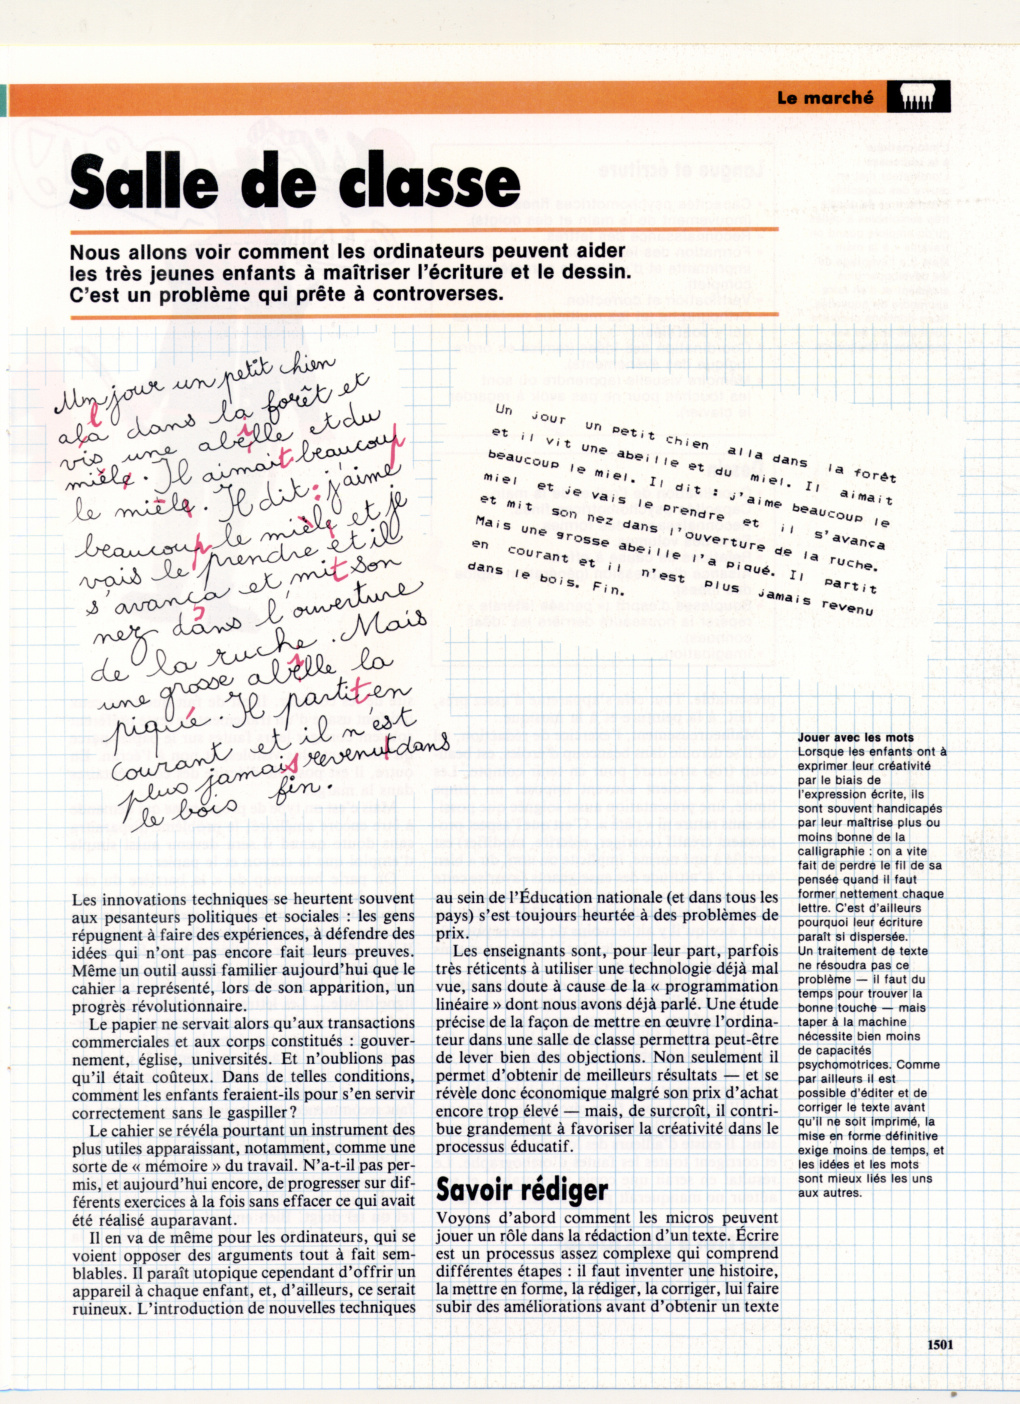 Le marché
Salle de classe
Nous allons voir comment les ordinateurs peuvent aider
les très jeunes enfants à maîtriser l'écriture et le dessin.
C'est un problème qui prête à controverses.
Um jour un petit chien
ala dans la forêt et
vis une abèlle et du
mièle. Il aimait beaucoup
le mièle. Il dit : j'aime
beaucoup le mièle et je
vais le prendre et il
s'avança et mit son
nez dans l'ouverture
de la ruche. Mais
une grosse abèlle la
piqué. Il partit en
courant et il n'est
plus jamais revenut dans
le bois fin.
Un jour un petit chien alla dans la forêt
et il vit une abeille et du miel. Il aimait
beaucoup le miel. Il dit : j'aime beaucoup le
miel et je vais le prendre et il s'avança
et mit son nez dans l'ouverture de la ruche.
Mais une grosse abeille l'a piqué. Il partit
en courant et il n'est plus jamais revenu
dans le bois. Fin.
Jouer avec les mots
Lorsque les enfants ont à
exprimer leur créativité
par le biais de
l'expression écrite, ils
sont souvent handicapés
par leur maîtrise plus ou
moins bonne de la
calligraphie : on a vite
fait de perdre le fil de sa
pensée quand il faut
former nettement chaque
lettre. C'est d'ailleurs
pourquoi leur écriture
paraît si dispersée.
Un traitement de texte
ne résoudra pas ce
problème — il faut du
temps pour trouver la
bonne touche — mais
taper à la machine
nécessite bien moins
de capacités
psychomotrices. Comme
par ailleurs il est
possible d'éditer et de
corriger le texte avant
qu'il ne soit imprimé, la
mise en forme définitive
exige moins de temps, et
les idées et les mots
sont mieux liés les uns
aux autres.
Les innovations techniques se heurtent souvent
aux pesanteurs politiques et sociales : les gens
répugnent à faire des expériences, à défendre des
idées qui n'ont pas encore fait leurs preuves.
Même un outil aussi familier aujourd'hui que le
cahier a représenté, lors de son apparition, un
progrès révolutionnaire.
Le papier ne servait alors qu'aux transactions
commerciales et aux corps constitués : gouver-
nement, église, universités. Et n'oublions pas
qu'il était coûteux. Dans de telles conditions,
comment les enfants feraient-ils pour s'en servir
correctement sans le gaspiller ?
Le cahier se révéla pourtant un instrument des
plus utiles apparaissant, notamment, comme une
sorte de « mémoire » du travail. N'a-t-il pas per-
mis, et aujourd'hui encore, de progresser sur dif-
férents exercices à la fois sans effacer ce qui avait
été réalisé auparavant.
Il en va de même pour les ordinateurs, qui se
voient opposer des arguments tout à fait sem-
blables. Il paraît utopique cependant d'offrir un
appareil à chaque enfant, et, d'ailleurs, ce serait
ruineux. L'introduction de nouvelles techniques
au sein de l'Éducation nationale (et dans tous les
pays) s'est toujours heurtée à des problèmes de
prix.
Les enseignants sont, pour leur part, parfois
très réticents à utiliser une technologie déjà mal
vue, sans doute à cause de la « programmation
linéaire » dont nous avons déjà parlé. Une étude
précise de la façon de mettre en œuvre l'ordina-
teur dans une salle de classe permettra peut-être
de lever bien des objections. Non seulement il
permet d'obtenir de meilleurs résultats — et se
révèle donc économique malgré son prix d'achat
encore trop élevé — mais, de surcroît, il contri-
bue grandement à favoriser la créativité dans le
processus éducatif.
Savoir rédiger
Voyons d'abord comment les micros peuvent
jouer un rôle dans la rédaction d'un texte. Écrire
est un processus assez complexe qui comprend
différentes étapes : il faut inventer une histoire,
la mettre en forme, la rédiger, la corriger, lui faire
subir des améliorations avant d'obtenir un texte
1501